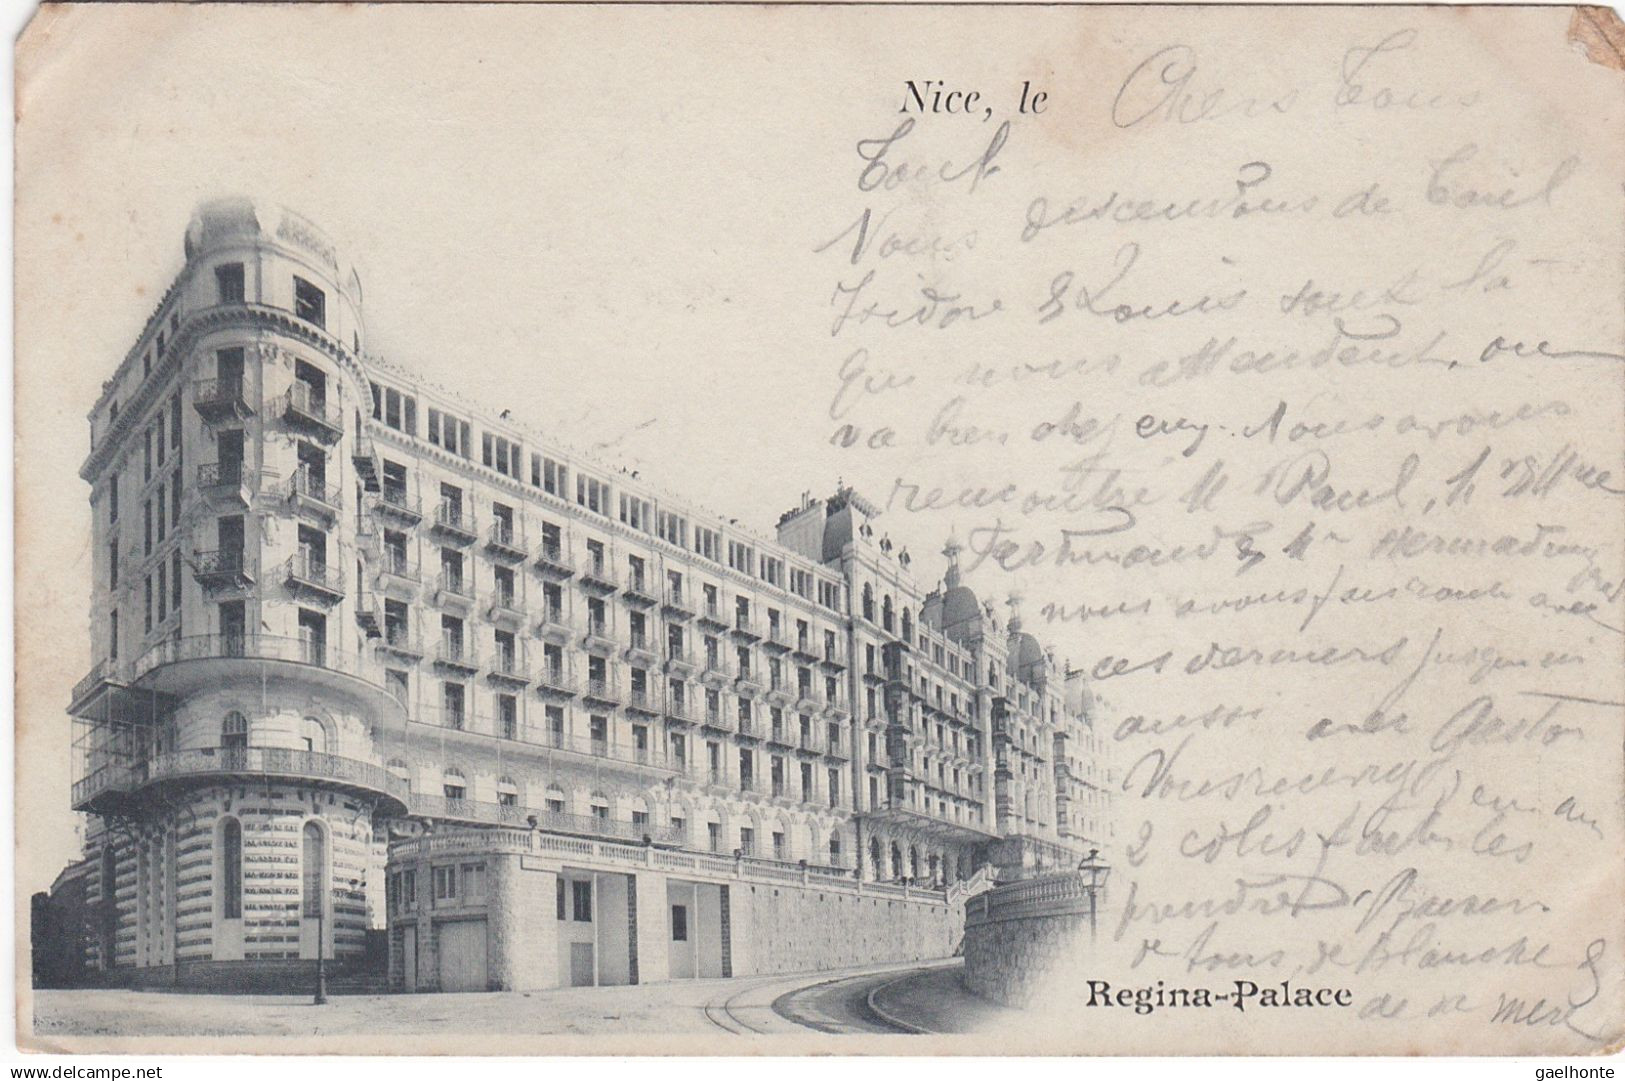 Nice, le
Chers Tous
Nous descendons de
Isidore & Louis sont là
qui nous attendent, on
va bien chez euy. Nous avons
rencontré Mr Paul, Mr & Mme
Ferdinand & Mr
nous avons fais route avec
ces derniers jusqu'ici
aussi avec Gaston
Vous
2 colis faites les
prendre. Baisers
à tous de Blanche &
de sa mère
Regina-Palace
delcampe.net
gaelhonte